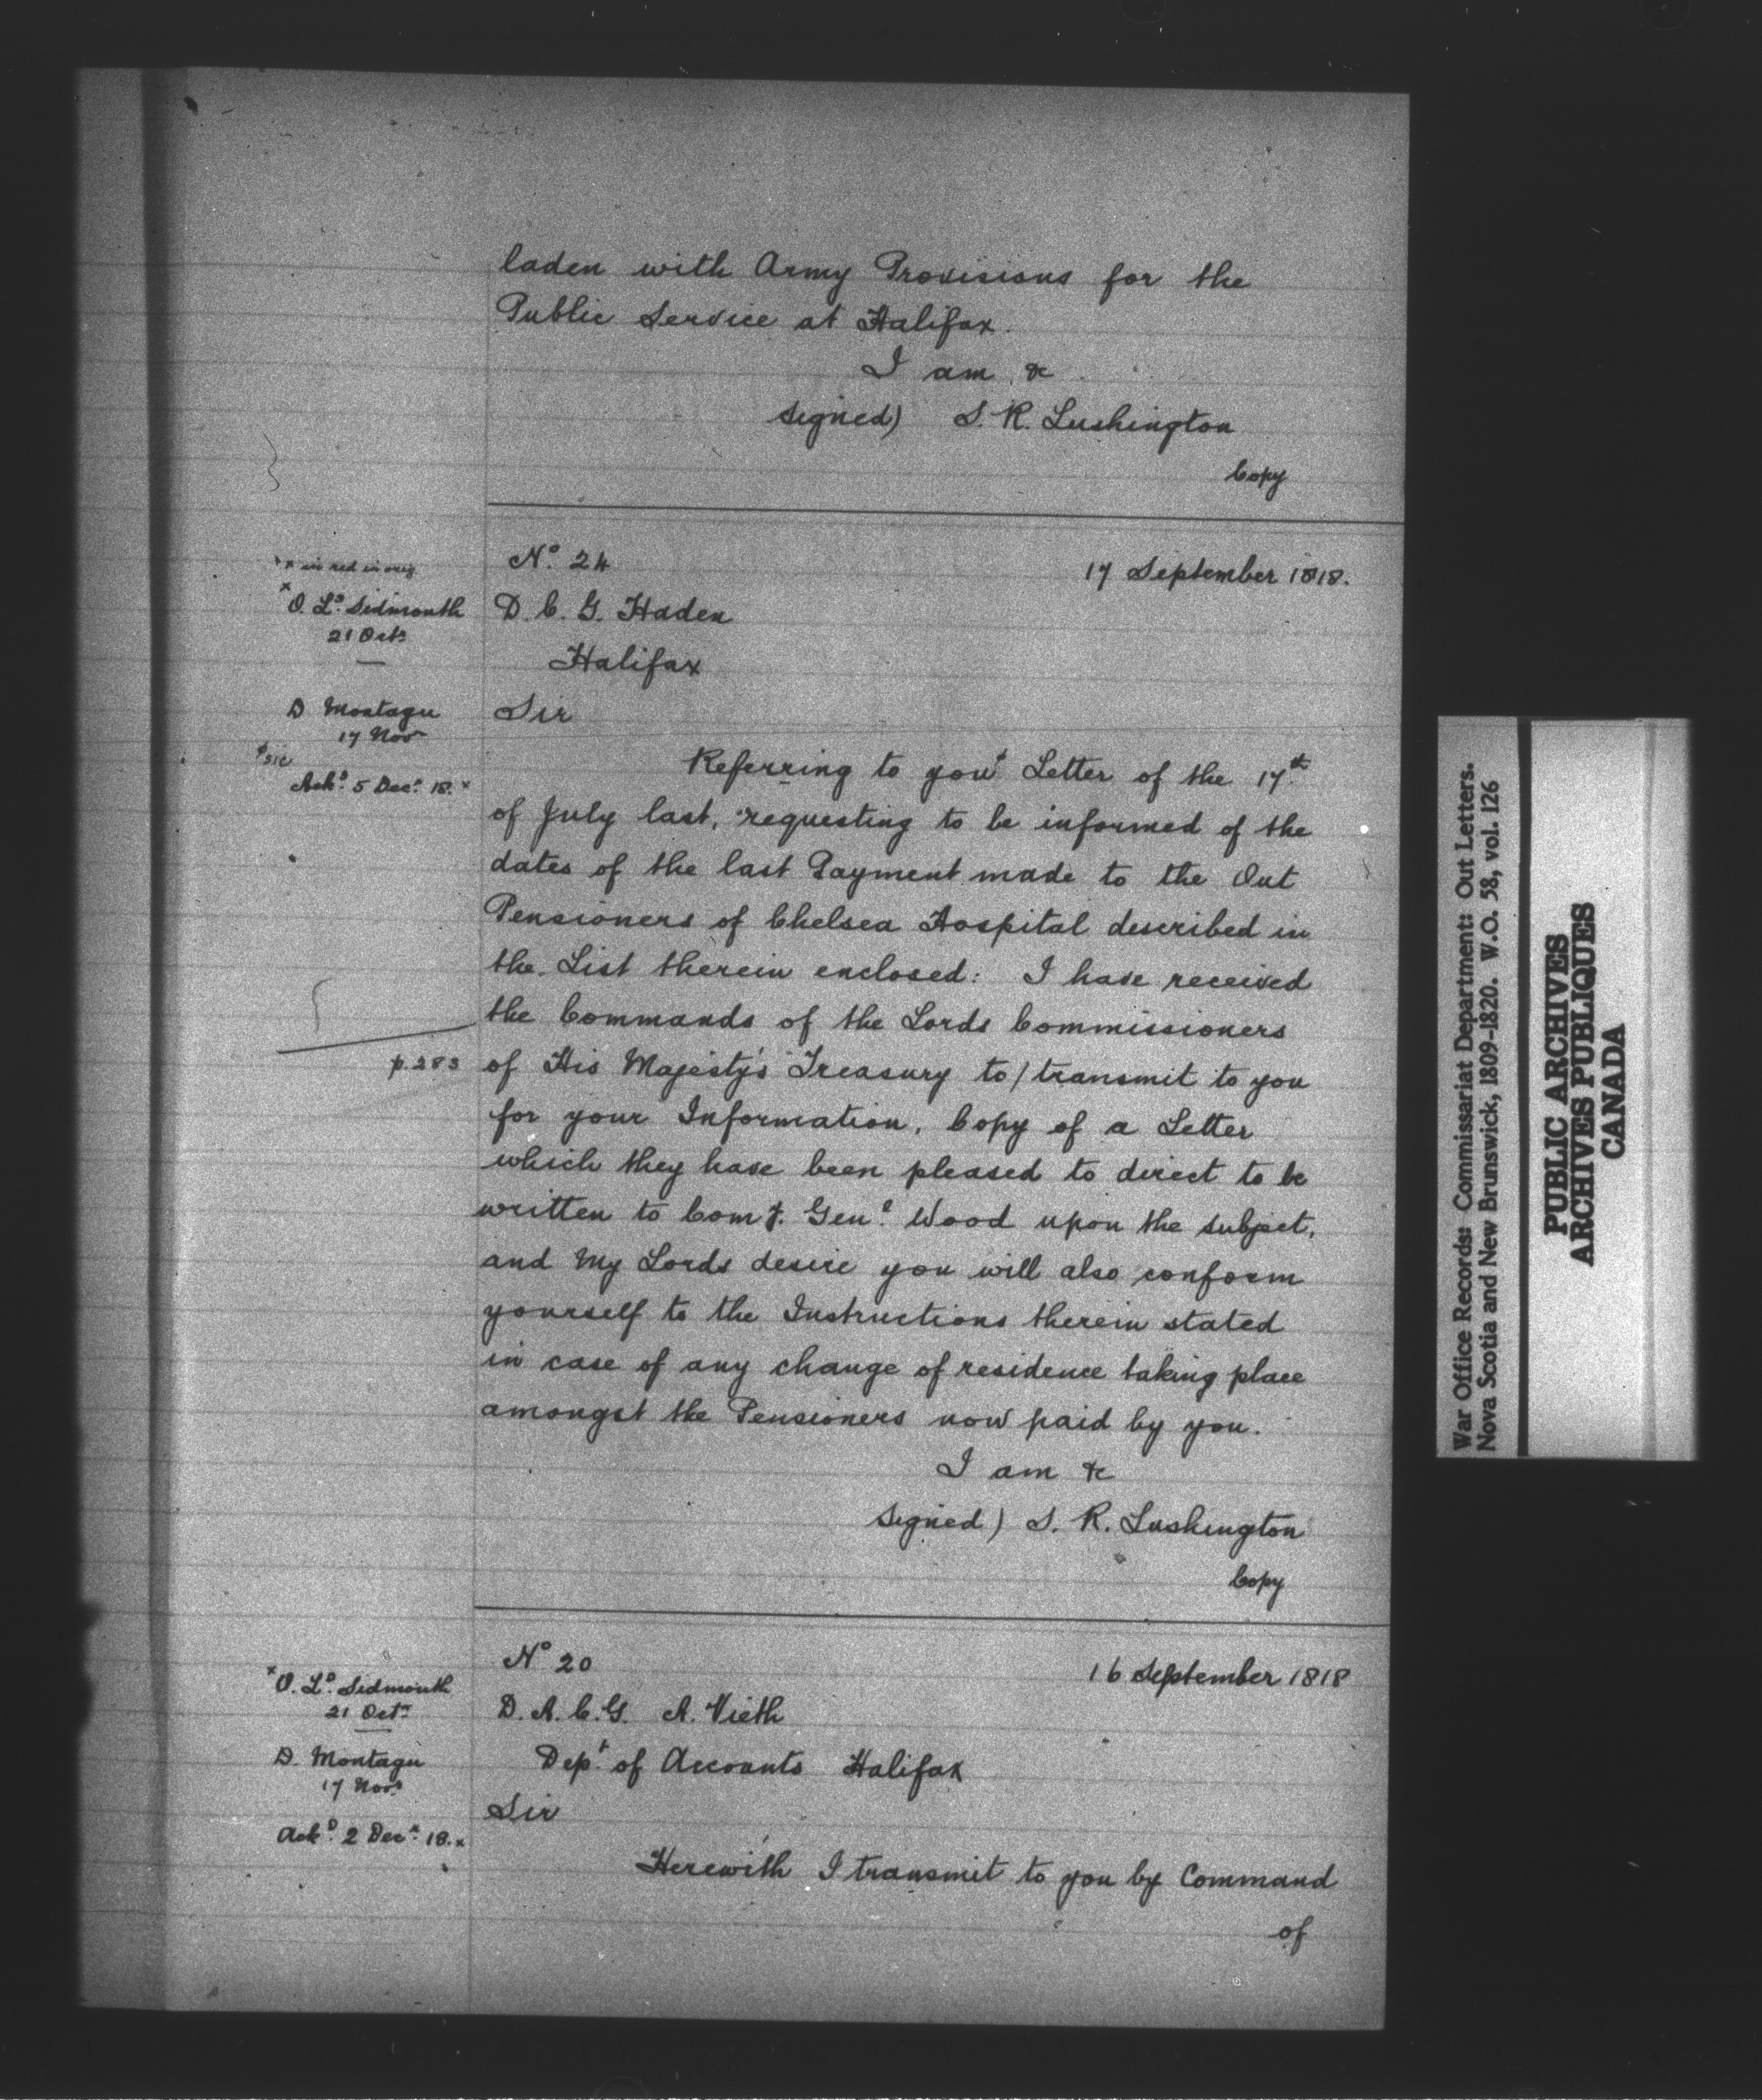 laden with Army Provisions for the
Public Service at Halifax.
I am &c
signed) S. R. Lushington
Copy
x x in red in orig.
No. 24
17 September 1818.
x
O. Ld. Sidmouth
21 Octr
D. C. G. Haden
Halifax
D Montagu
17 Nov
Sir
ɸ sic
Ackd. 5 Decr. 18. x
Referring to you ɸ Letter of the 17th.
of July last, requesting to be informed of the
dates of the last Payment made to the Out
Pensioners of Chelsea Hospital described in
the List therein enclosed: I have received
the Commands of the Lords Commissioners
p. 283
of His Majesty's Treasury to/transmit to you
for your Information, Copy of a Letter
which they have been pleased to direct to be
written to Comy. Genl. Wood upon the subject,
and My Lords desire you will also conform
yourself to the Instructions therein stated
in case of any change of residence taking place
amongst the Pensioners now paid by you.
I am &c
signed) S. R. Lushington
Copy
No 20
16 September 1818
x O. Ld. Sidmouth
21 Octr
D. A. C. G. A. Vieth
Dept. of Accounts Halifax
D. Montagu
17 Novr
Sir
Ackd. 2 Decr. 18. x
Herewith I transmit to you by Command
of
War Office Records: Commissariat Department: Out Letters.
Nova Scotia and New Brunswick, 1809-1820. W.O. 58, vol. 126
PUBLIC ARCHIVES
ARCHIVES PUBLIQUES
CANADA